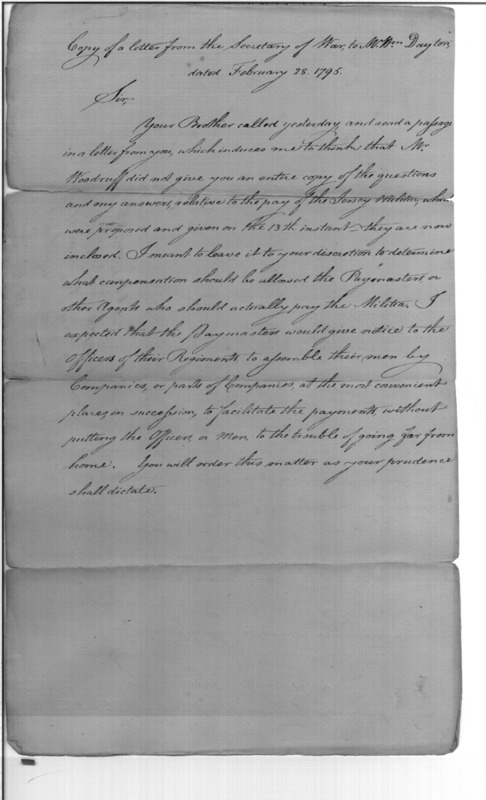 Copy of a letter from the Secretary of War, to Mr. Wm. Dayton,
dated February 28. 1795.
Sir,
Your Brother called yesterday, and read a passage
in a letter from you, which induces me to think that Mr.
Woodruff did not give you an entire copy of the questions
and my answers, relative to the pay of the Jersey Militia, which
were proposed and given on the 13th instant - they are now
inclosed. I meant to leave it to your discretion to determine
what compensation should be allowed the Paymasters, or
other Agents who should actually pay the Militia. I
expected that the Paymasters would give notice to the
Officers of their Regiments to assemble their men by
Companies, or parts of Companies, at the most convenient
places in succession, to facilitate the payments, without
putting the Officers, or Men, to the trouble of going far from
home. You will order this matter as your prudence
shall dictate.